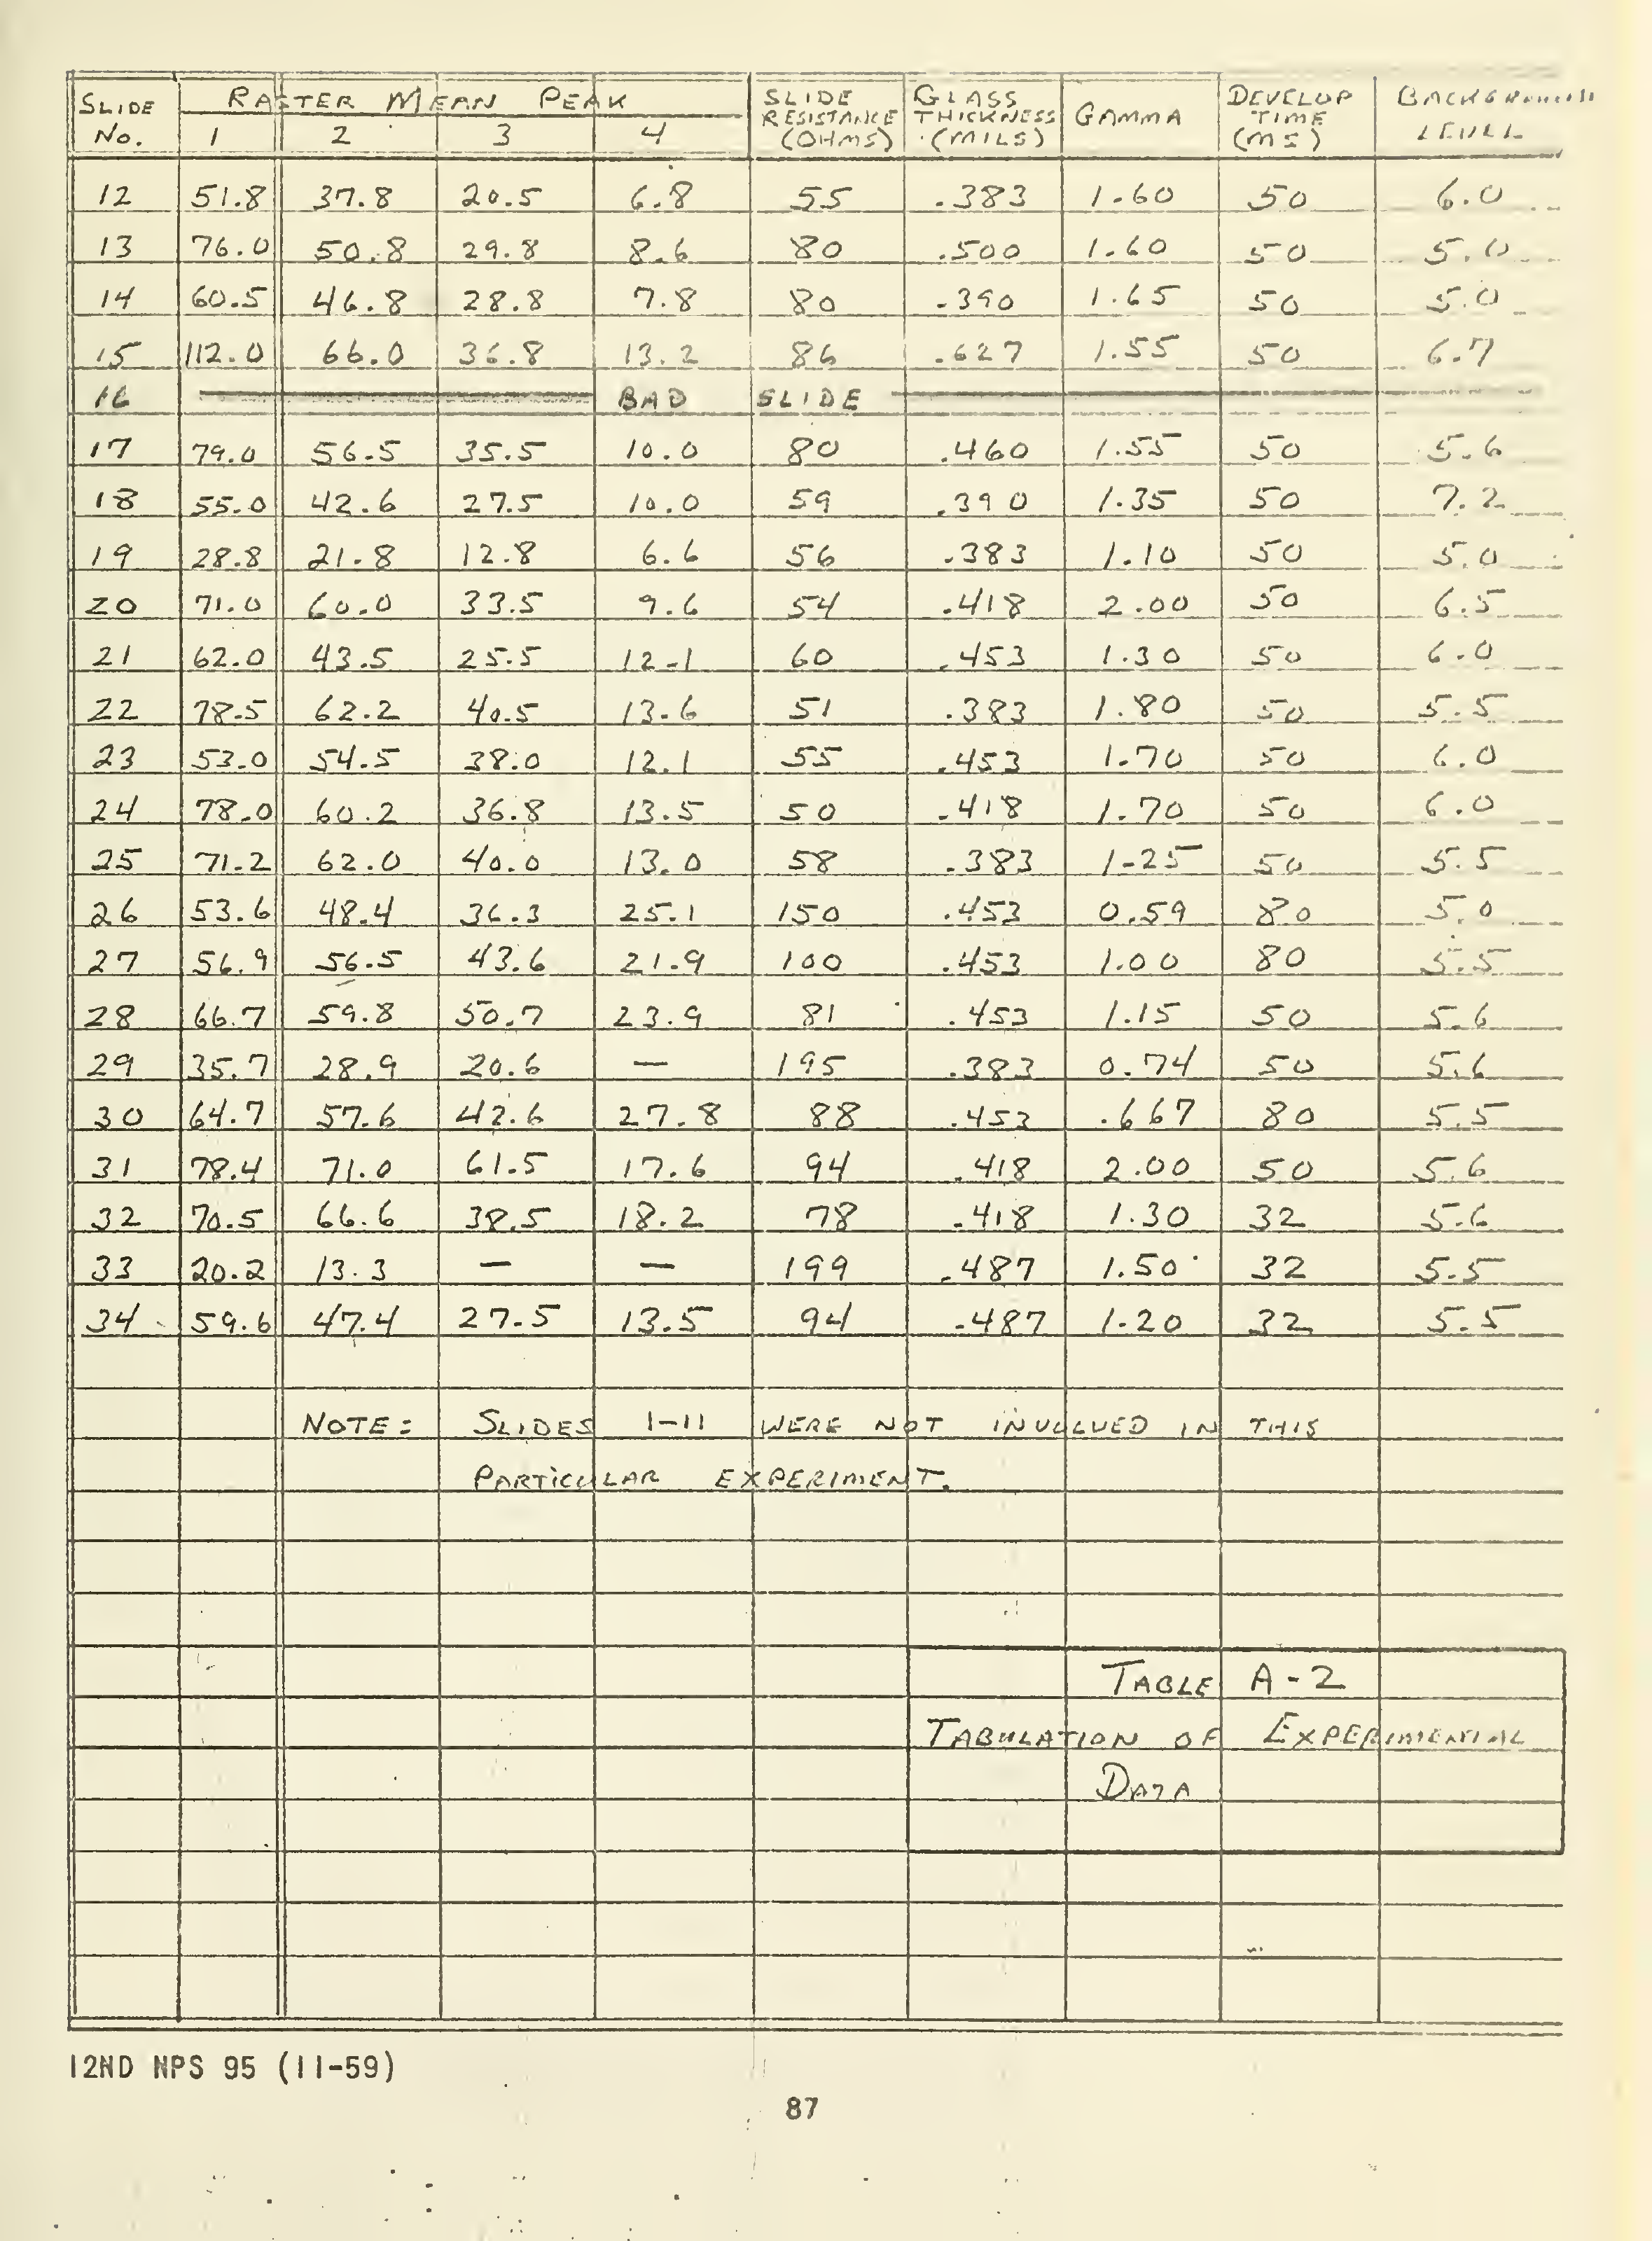 SLIDE No. RASTER MEAN PEAK SLIDE RESISTANCE (OHMS) GLASS THICKNESS (MILS) GAMMA DEVELOP TIME (MS) BACKGROUND LEVEL
1 2 3 4
12 51.8 37.8 20.5 6.8 55 .383 1.60 50 6.0
13 76.0 50.8 29.8 8.6 80 .500 1.60 50 5.0
14 60.5 46.8 28.8 7.8 80 .390 1.65 50 5.0
15 112.0 66.0 36.8 13.2 86 .627 1.55 50 6.7
16 BAD SLIDE
17 79.0 56.5 35.5 10.0 80 .460 1.55 50 5.6
18 55.0 42.6 27.5 10.0 59 .390 1.35 50 7.2
19 28.8 21.8 12.8 6.6 56 .383 1.10 50 5.0
20 71.0 60.0 33.5 9.6 54 .418 2.00 50 6.5
21 62.0 43.5 25.5 12.1 60 .453 1.30 50 6.0
22 78.5 62.2 40.5 13.6 51 .383 1.80 50 5.5
23 53.0 54.5 38.0 12.1 55 .453 1.70 50 6.0
24 78.0 60.2 36.8 13.5 50 .418 1.70 50 6.0
25 71.2 62.0 40.0 13.0 58 .383 1.25 50 5.5
26 53.6 48.4 36.3 25.1 150 .453 0.59 80 5.0
27 56.9 56.5 43.6 21.9 100 .453 1.00 80 5.5
28 66.7 59.8 50.7 23.9 81 .453 1.15 50 5.6
29 35.7 28.9 20.6 — 195 .383 0.74 50 5.6
30 64.7 57.6 42.6 27.8 88 .453 .667 80 5.5
31 78.4 71.0 61.5 17.6 94 .418 2.00 50 5.6
32 70.5 66.6 38.5 18.2 78 .418 1.30 32 5.6
33 20.2 13.3 — — 199 .487 1.50 32 5.5
34 59.6 47.4 27.5 13.5 94 .487 1.20 32 5.5
NOTE: SLIDES 1-11 WERE NOT INVOLVED IN THIS
PARTICULAR EXPERIMENT.
TABLE A-2
TABULATION OF EXPERIMENTAL
DATA
12ND NPS 95 (11-59)
87